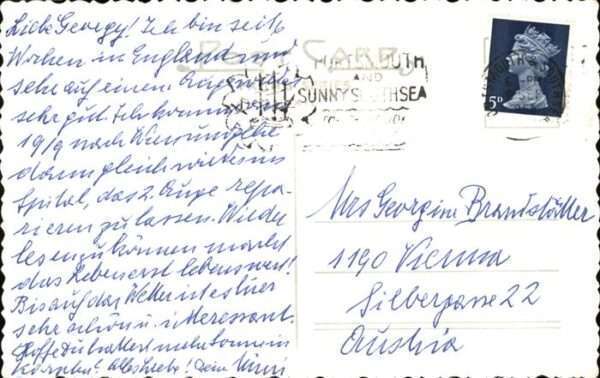 Liebe Georgy! Ich bin seit 4
Wochen in England und
sehe auf einem Auge wieder
sehr gut. Ich komme
19/9 nach Wien und gehe
dann gleich wieder ins
Spital, das 2. Auge repa-
rieren zu lassen. Wieder
lesen zu können macht
das Leben erst lebenswert!
Bis auf das Wetter ist es hier
sehr schön u. interessant.
Hoffe Du hattest mehr Sonne in
Alles Liebe! Deine
POST CARD
PORTSMOUTH
AND
SUNNY SOUTHSEA
5D
Mrs Georgine Brandstätter
1190 Vienna
Silbergasse 22
Austria